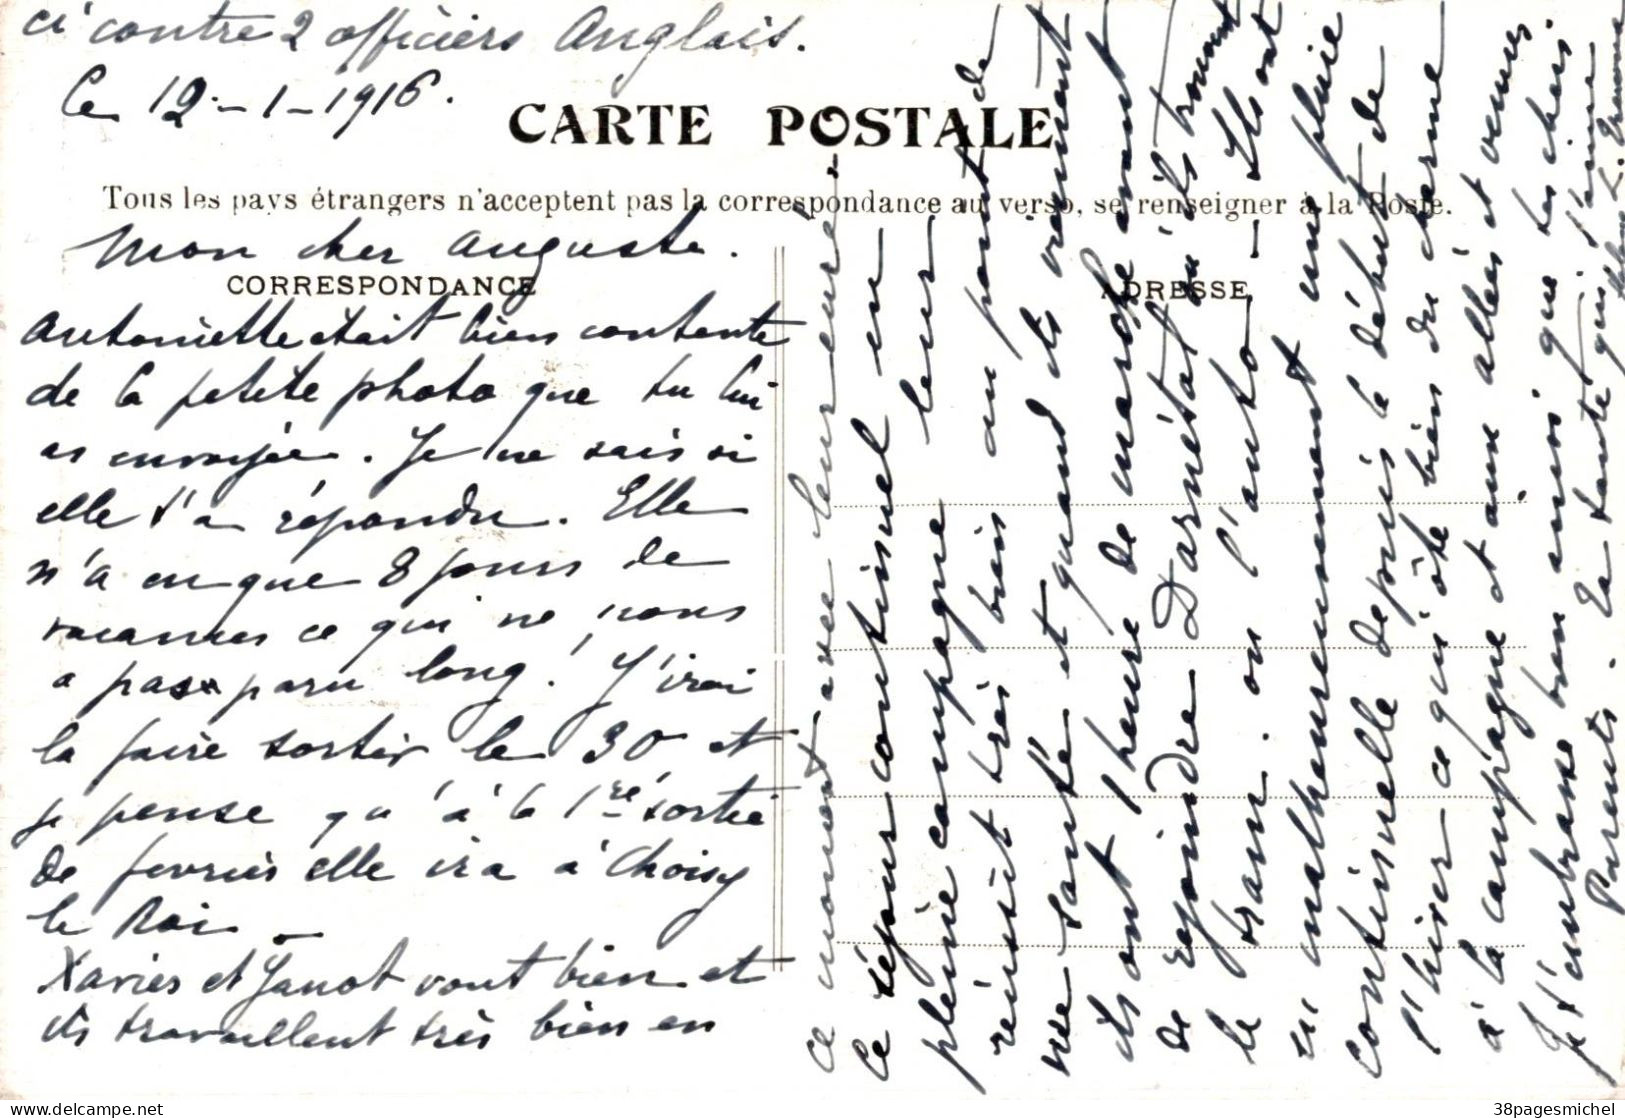 ci contre 2 officiers Anglais.
Le 12-1-1916.
CARTE POSTALE
Tous les pays étrangers n'acceptent pas la correspondance au verso, se renseigner à la Poste.
Mon cher Auguste.
CORRESPONDANCE
ADRESSE
Antoinette était bien contente
de la petite photo que tu lui
as envoyée. Je ne sais si
elle t'a répondu. Elle
n'a eu que 8 jours de
vacances ce qui ne nous
a pas paru long! J'irai
la faire sortir le 30 et
je pense qu'à la 1re sortie
de fevrier elle ira à Choisy
le Roi
Xavier et Janot vont bien et
ils travaillent très bien en
ce moment avec leur curé.
Ce séjour continuel en
pleine campagne leur
réussit très bien au point de
vue santé et quand ils viennent
ils ont 1 heure de marche avant
de rejoindre Darnétal où ils trouvent
le tram. ou l'auto - Ils ont
eu malheureusement une pluie
continuelle depuis le début de
l'hiver ce qui ôte bien du charme
à la campagne et aux allées et venues
Je t'embrasse bien ainsi que tes chers
Parents. Ta tante qui t'aime